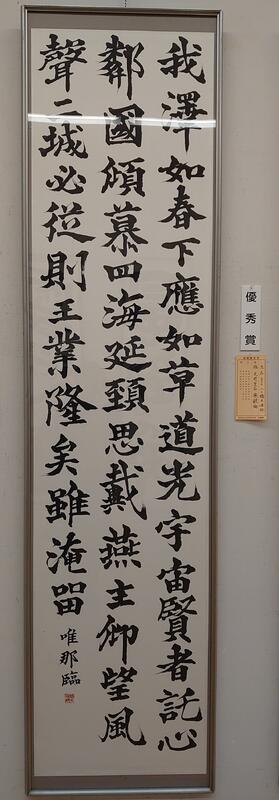 我澤如春下應如草道光宇宙賢者託心
鄰國傾慕四海延頸思戴燕主仰望風
聲二城必從則王業隆矣雖淹留
唯那臨
優秀賞